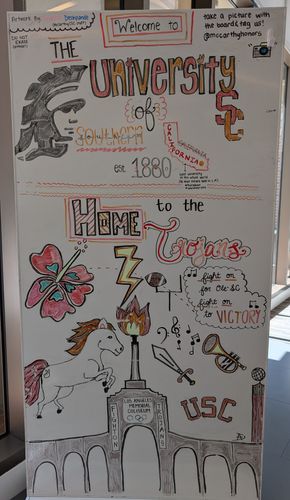 Artwork By:
DO NOT
ERASE
Welcome to
take a picture with
the board & tag us!
@mccarthyhonors
THE
University
of
SC
Southern
CALIFORNIA
est 1880
Home to the
Trojans
fight on
for Ole SC
fight on
to VICTORY
USC
LOS ANGELES
MEMORIAL
COLISEUM
FIGHT ON
TROJANS